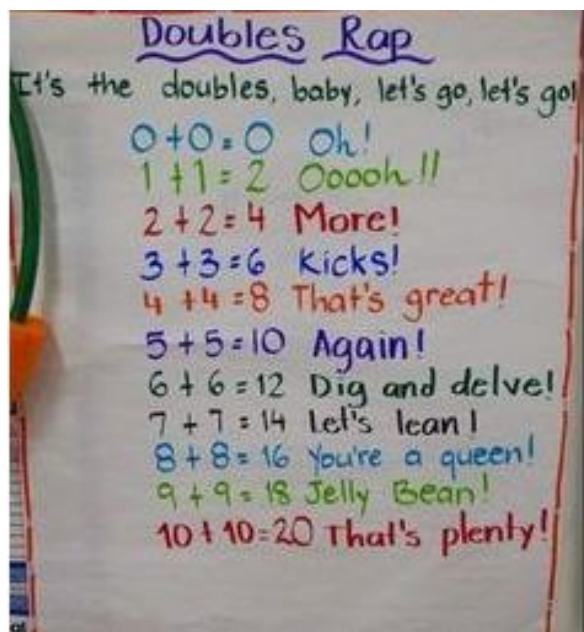 Doubles Rap
It's the doubles, baby, let's go, let's go!
0+0=0 Oh!
1+1=2 Ooooh!!
2+2=4 More!
3+3=6 Kicks!
4+4=8 That's great!
5+5=10 Again!
6+6=12 Dig and delve!
7+7=14 Let's lean!
8+8=16 You're a queen!
9+9=18 Jelly Bean!
10+10=20 That's plenty!